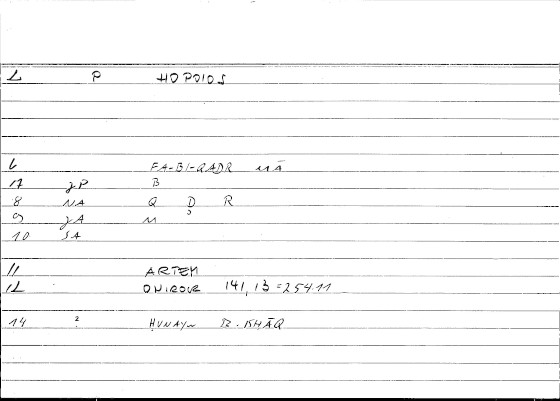 1 P HOPOIOS
6 FA-BI-QADR MĀ
17 JP B
8 NA Q D R
9 JA M
10 SA
11 ARTEM
12 ONIROCR 141, 13 = 254 11
14 ? ḤUNAYN B. ISḤĀQ